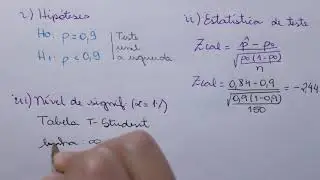 i) Hipóteses
H0: p = 0,9
H1: p < 0,9
Teste
unil
à esquerda
ii) Estatística de teste
Zcal = p̂ - p0 / √(p0(1-p0)/n)
Zcal = 0,84 - 0,9 / √(0,9(1-0,9)/150) = -2,44
iii) Nível de signif (α = 1%)
Tabela T-Student
linha ∞